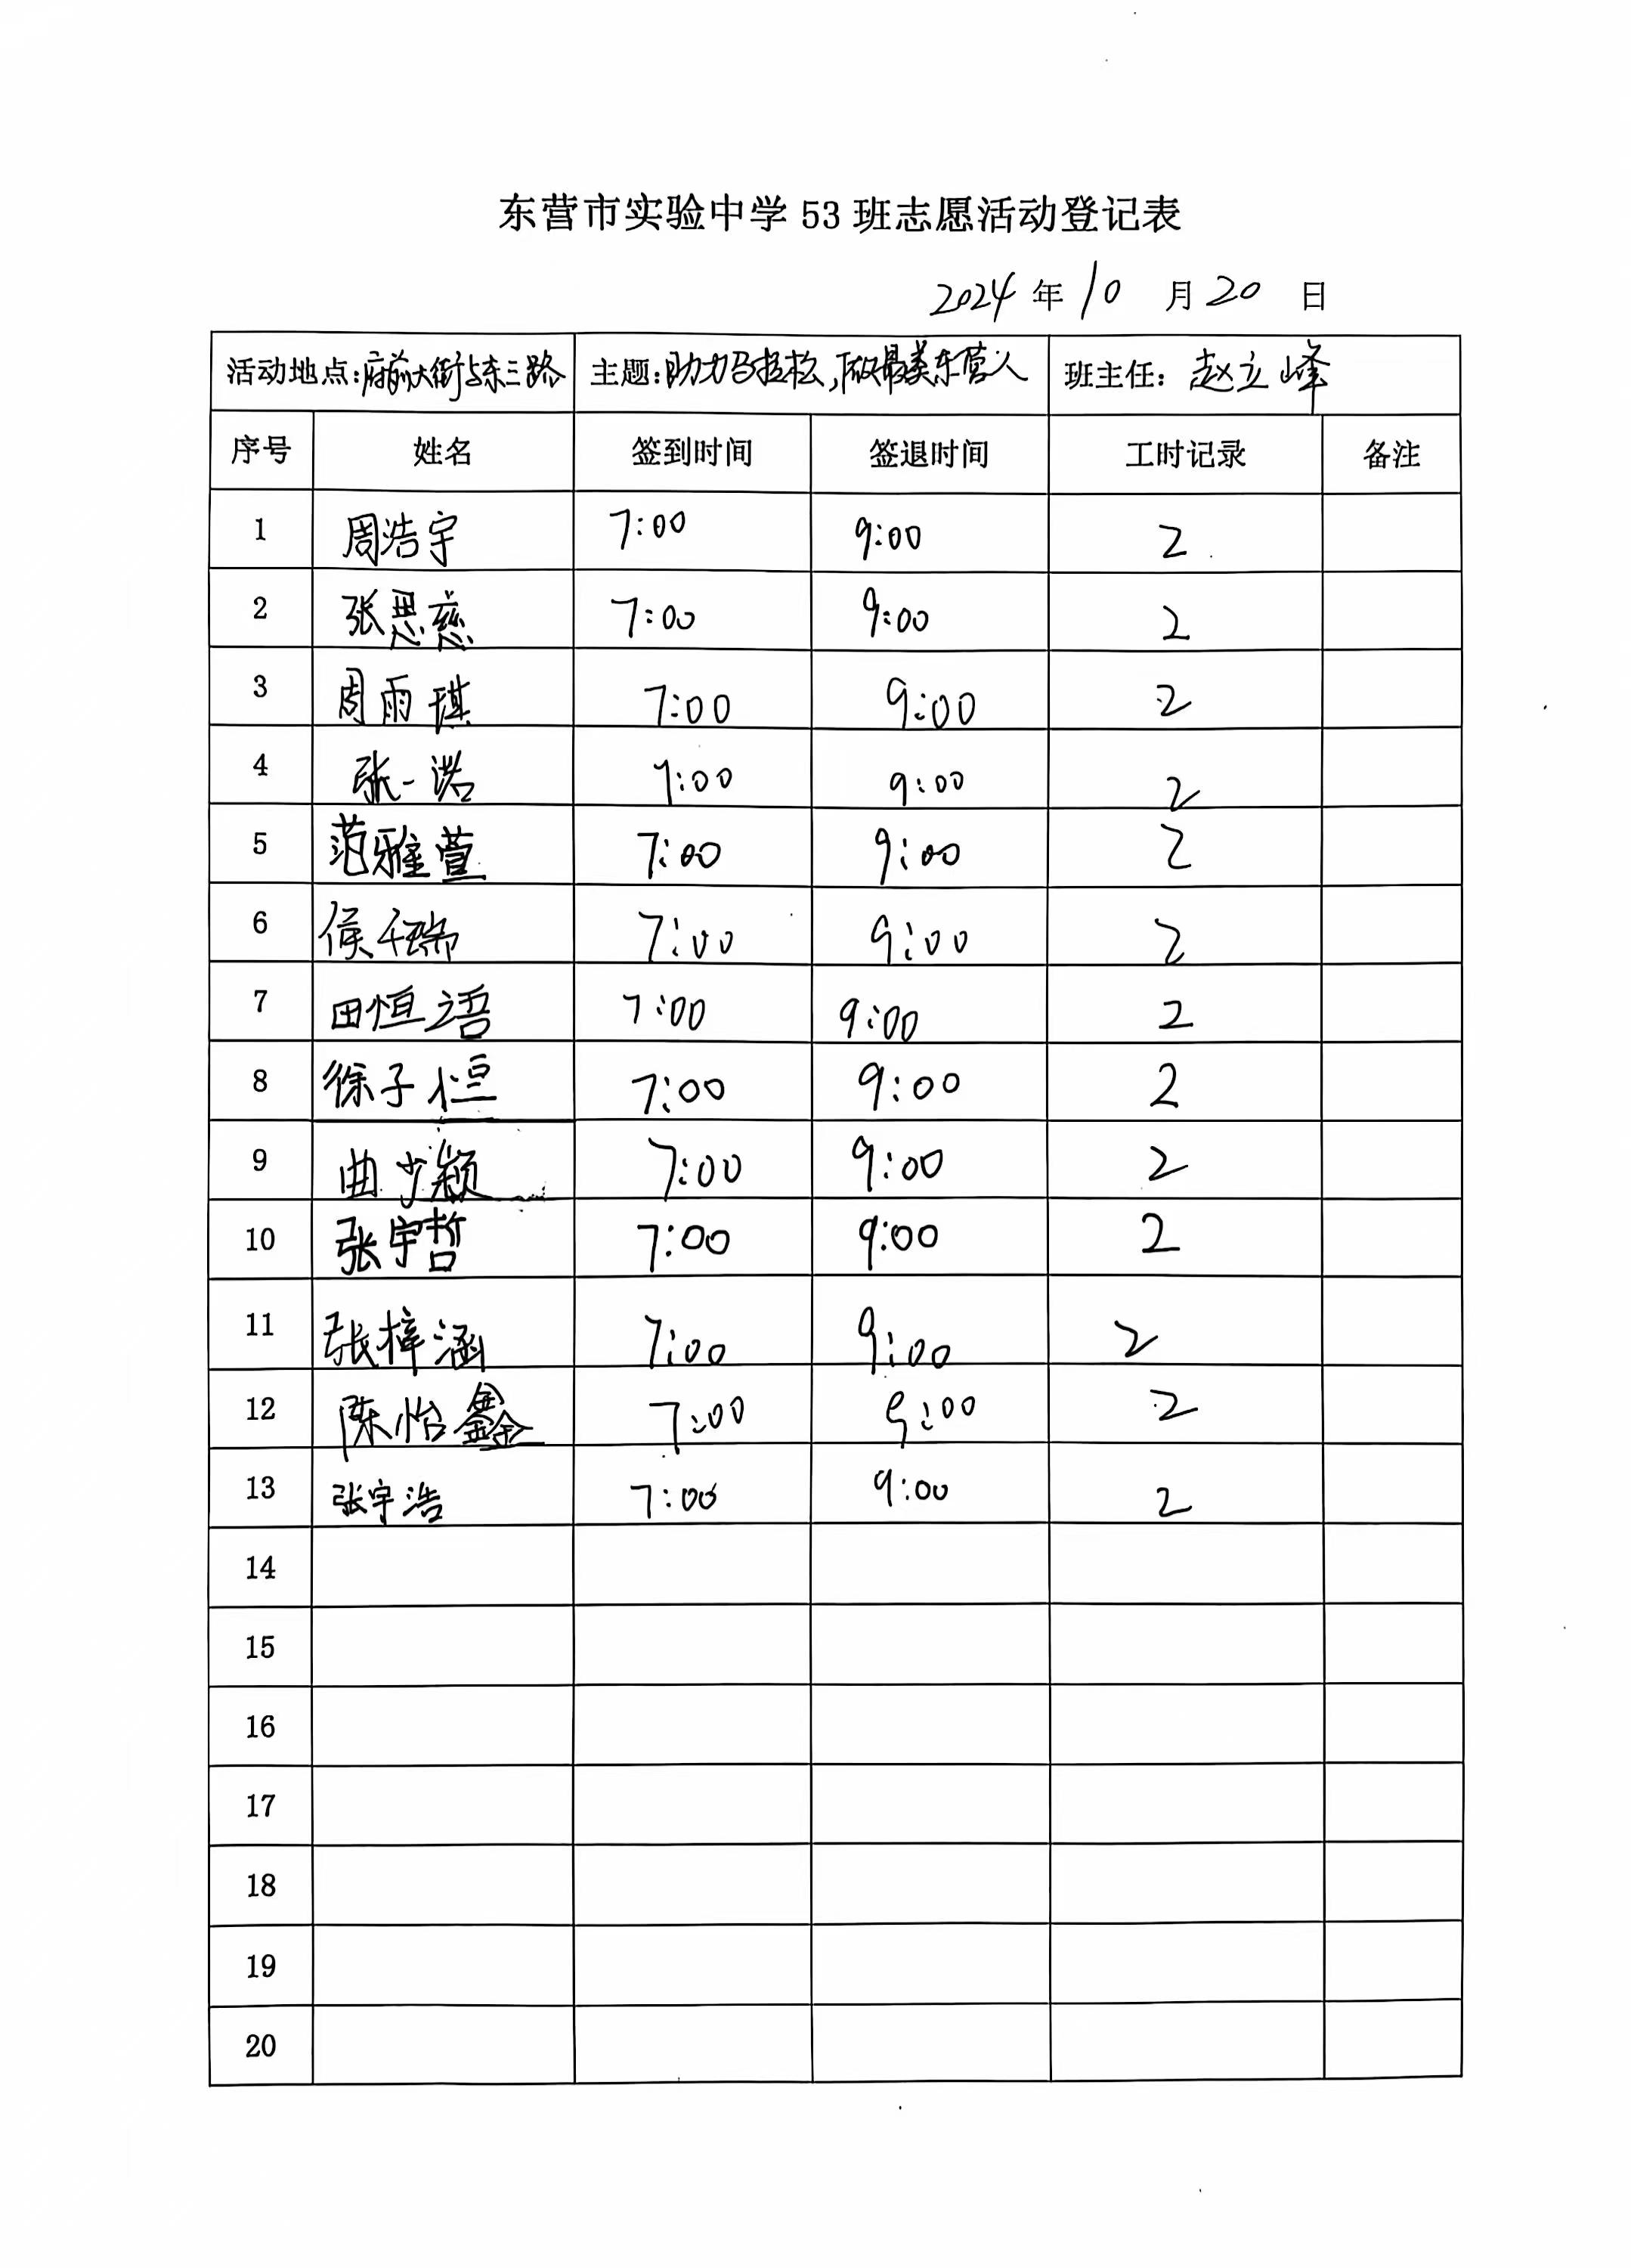 东营市实验中学 53 班志愿活动登记表
2024 年 10 月 20 日
活动地点:府前大街与东三路 主题:助力马拉松,做最美东营人 班主任: 赵立峰
序号 姓名 签到时间 签退时间 工时记录 备注
1 周浩宇 7:00 9:00 2
2 张思慈 7:00 9:00 2
3 周雨琪 7:00 9:00 2
4 张一诺 7:00 9:00 2
5 范雅萱 7:00 9:00 2
6 侯千瑞 7:00 9:00 2
7 田恒语 7:00 9:00 2
8 徐子恒 7:00 9:00 2
9 曲少颖 7:00 9:00 2
10 张宇哲 7:00 9:00 2
11 张梓涵 7:00 9:00 2
12 陈怡鑫 7:00 9:00 2
13 张宇浩 7:00 9:00 2
14
15
16
17
18
19
20